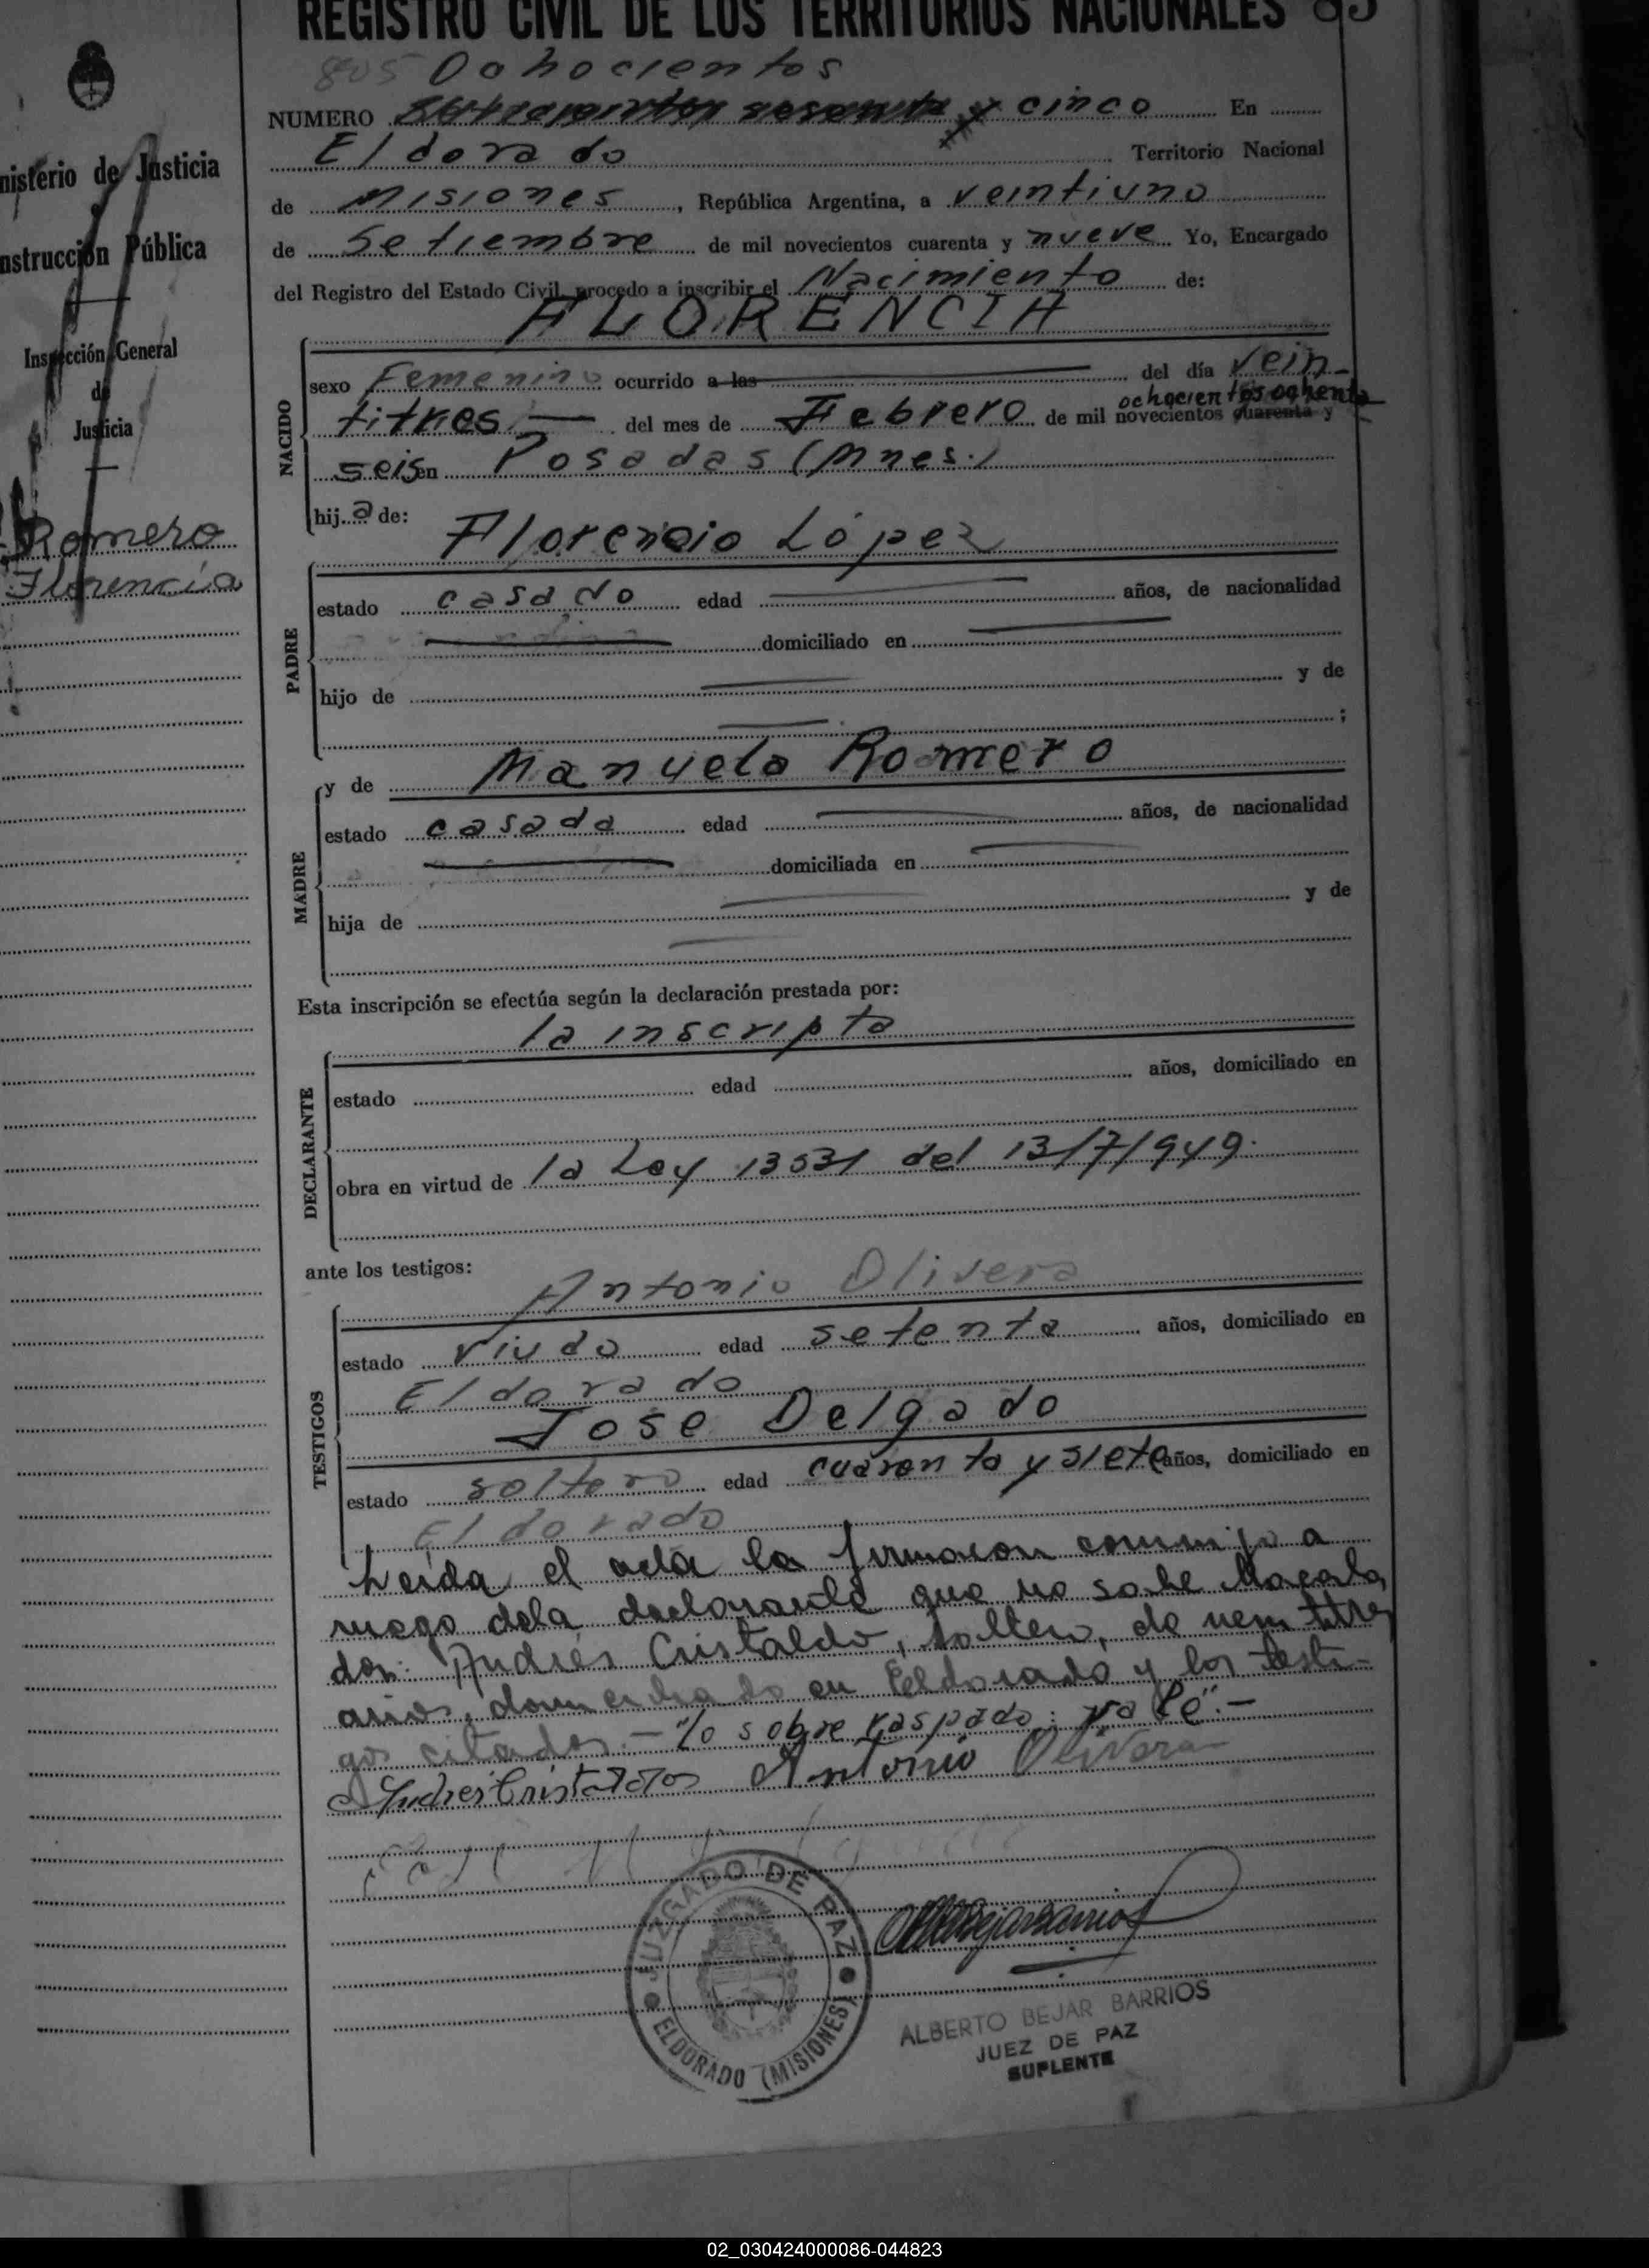 REGISTRO CIVIL DE LOS TERRITORIOS NACIONALES 83
805 Ochocientos
NUMERO y cinco En
Eldorado Territorio Nacional
de Misiones, República Argentina, a veintiuno
de Setiembre de mil novecientos cuarenta y nueve Yo, Encargado
del Registro del Estado Civil, procedo a inscribir el Nacimiento de:
FLORENCIA
NACIDO
sexo Femenino ocurrido a las del día vein-
ochocientos ochenta
titres.— del mes de Febrero de mil novecientos cuarenta y
seis en Posadas (Mnes.)
hija de:
Florencio López
PADRE
estado casado edad años, de nacionalidad
domiciliado en
hijo de y de
;
MADRE
y de Manuela Romero
estado casada edad años, de nacionalidad
domiciliada en
hija de y de
Esta inscripción se efectúa según la declaración prestada por:
la inscripta
DECLARANTE
estado edad años, domiciliado en
obra en virtud de la Ley 13531 del 13/7/949.
ante los testigos:
Antonio Olivera
TESTIGOS
estado viudo edad setenta años, domiciliado en
Eldorado
Jose Delgado
estado soltero edad cuarenta y siete años, domiciliado en
Eldorado
Leida el acta la firmaron conmigo a
ruego dela declarante que no sabe
Andrés Cristaldo, soltero, de veintitres
años, domiciliado en Eldorado y los testi-
gos citados.— "lo sobre raspado: vale".—
Andres Cristaldo Antonio Olivera
JUZGADO DE PAZ
ELDORADO (MISIONES)
ALBERTO BEJAR BARRIOS
JUEZ DE PAZ
SUPLENTE
nisterio de Justicia
nstrucción Pública
Inspección General
de
Justicia
Romero
Florencia
02_030424000086-044823